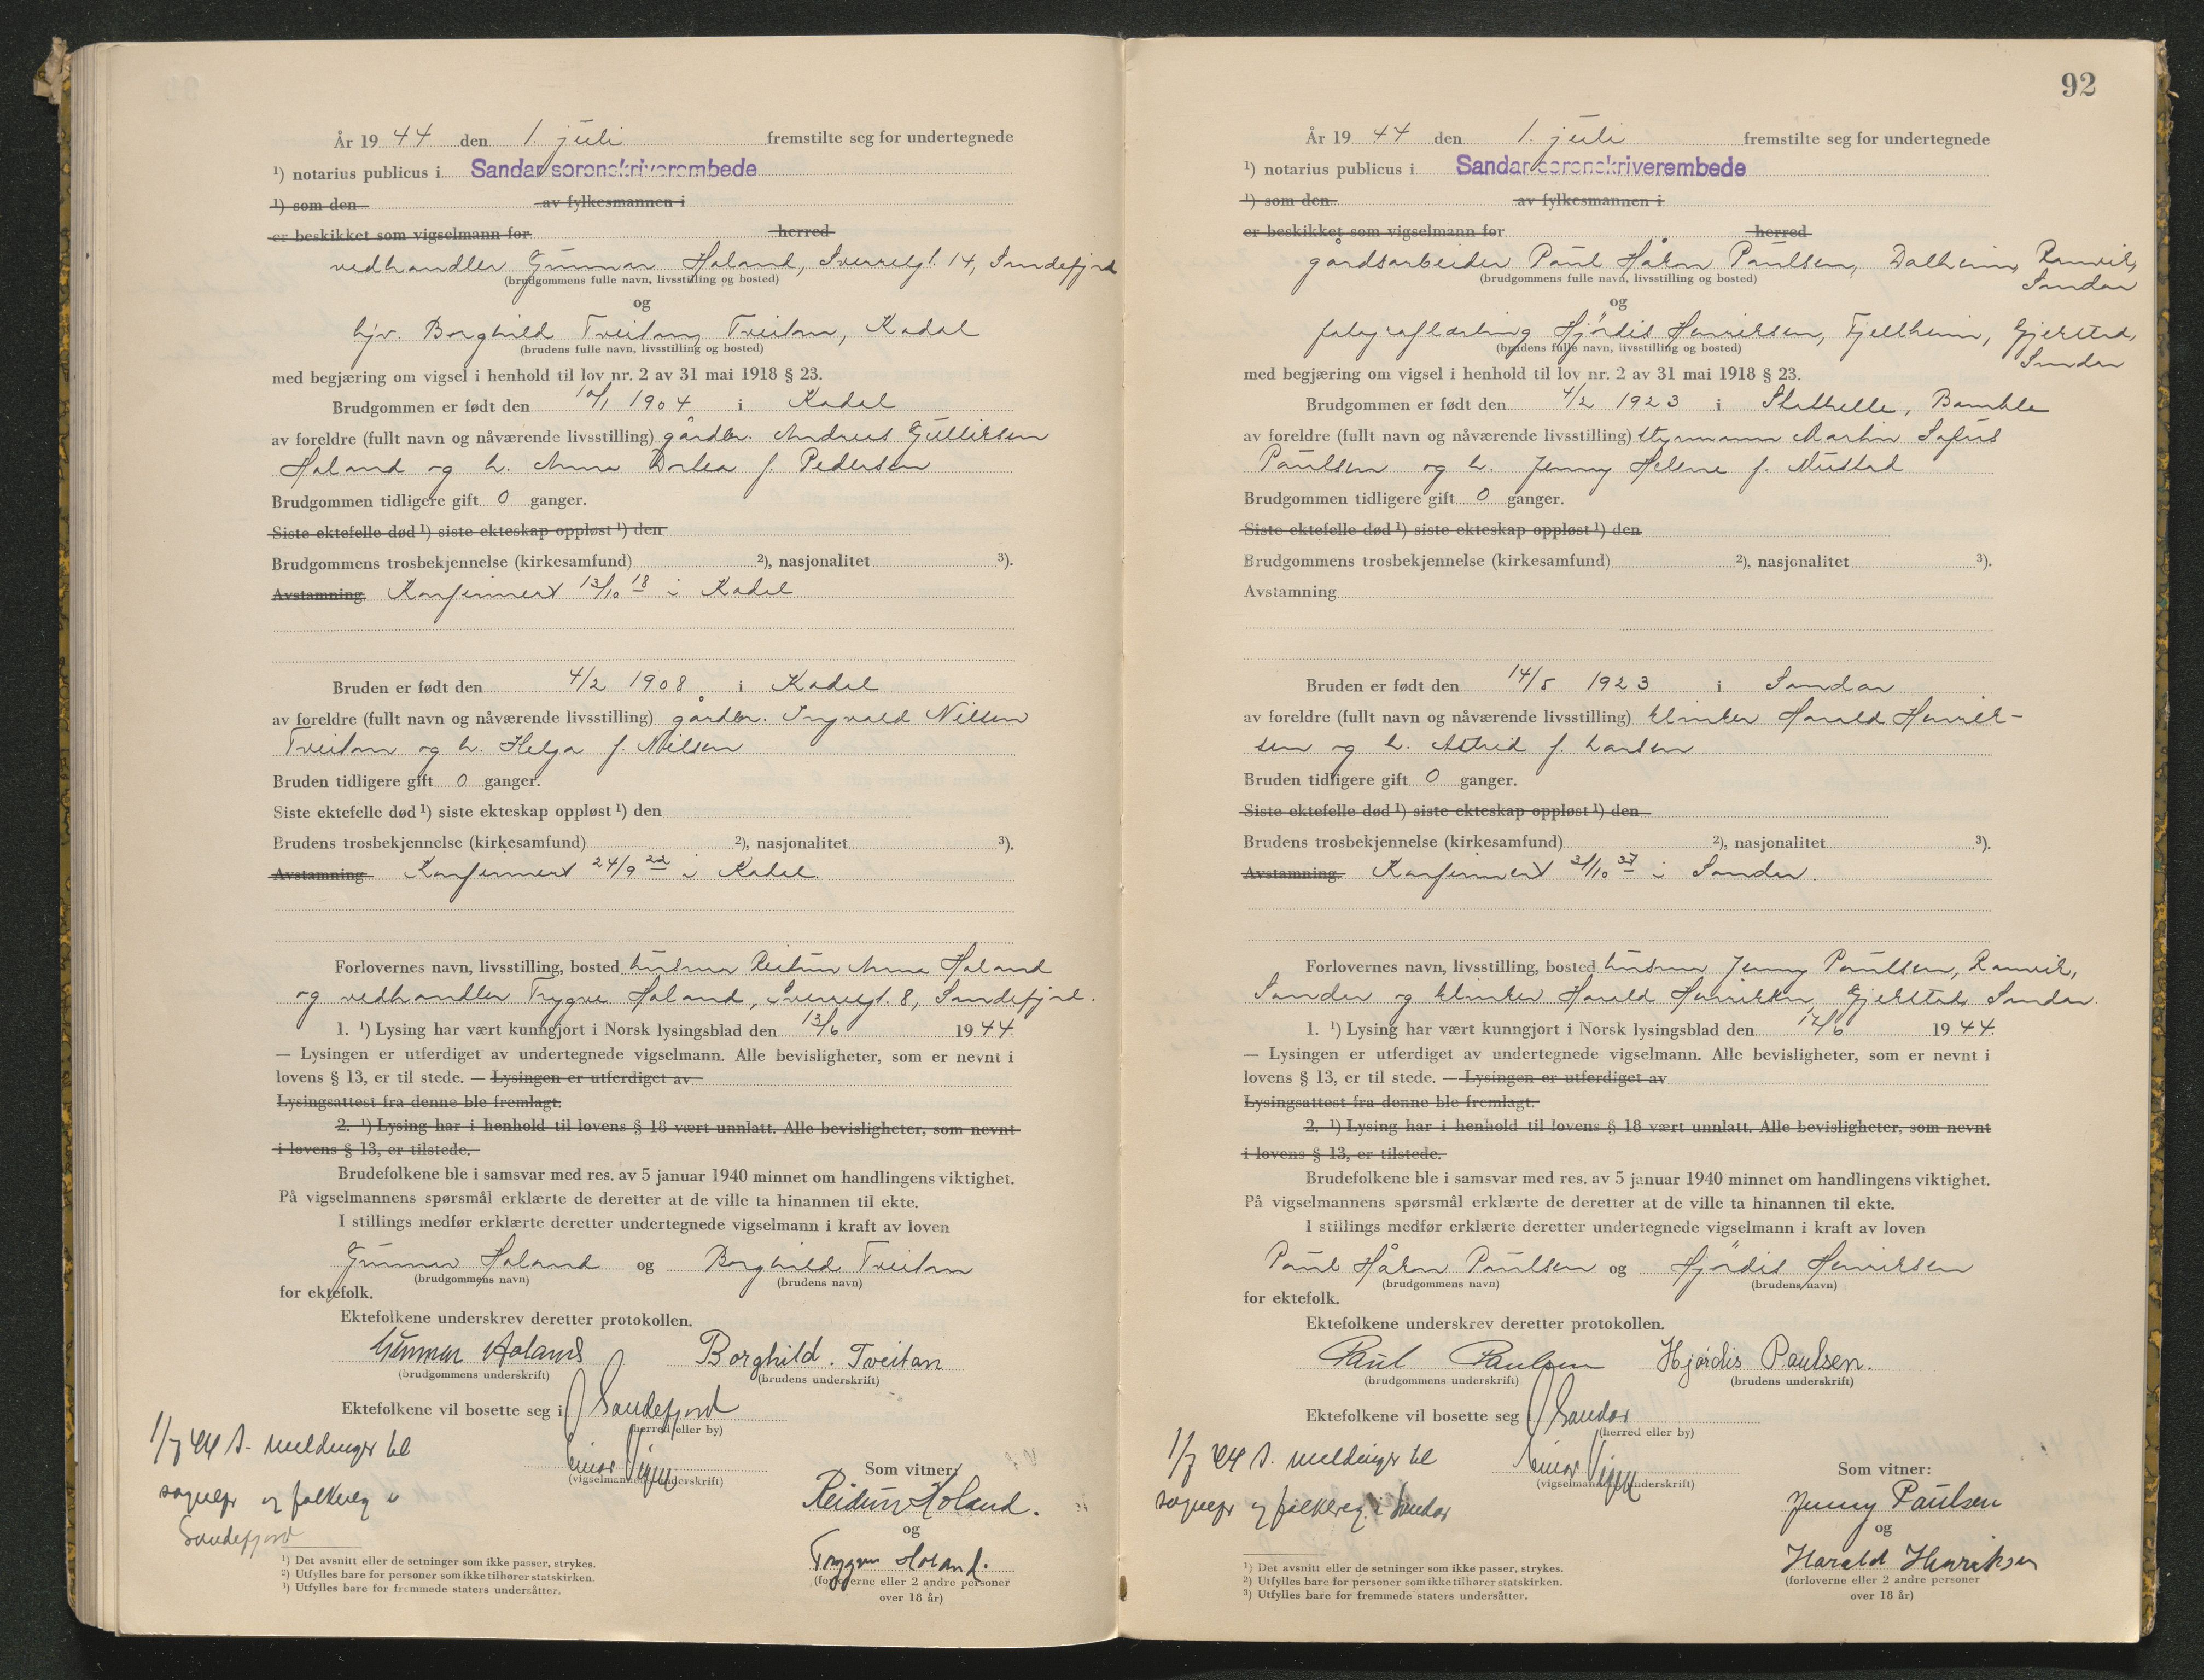 År 19 44 den 1. juli fremstilte seg for undertegnede
¹) notarius publicus i Sandar sorenskriverembede
¹) som den av fylkesmannen i
er beskikket som vigselmann for herred
vedhandler Gunnar Holand, Sverresgt. 14, Sandefjord
(brudgommens fulle navn, livsstilling og bosted)
og
hjv. Borghild Tveitan, Tveitan, Kodal
(brudens fulle navn, livsstilling og bosted)
med begjæring om vigsel i henhold til lov nr. 2 av 31 mai 1918 § 23.
Brudgommen er født den 10/1 1904 i Kodal
av foreldre (fullt navn og nåværende livsstilling) gårdbr. Andreas Gulliksen
Holand og h. Anna Dorlea f. Pedersen
Brudgommen tidligere gift 0 ganger.
Siste ektefelle død ¹) siste ekteskap oppløst ¹) den
Brudgommens trosbekjennelse (kirkesamfund) ²), nasjonalitet ³).
Avstamning Konfirmert 13/10 18 i Kodal
Bruden er født den 4/2 1908 i Kodal
av foreldre (fullt navn og nåværende livsstilling) gårdbr. Ingvald Nilsen
Tveitan og h. Helga f. Nilsen
Bruden tidligere gift 0 ganger.
Siste ektefelle død ¹) siste ekteskap oppløst ¹) den
Brudens trosbekjennelse (kirkesamfund) ²), nasjonalitet ³).
Avstamning Konfirmert 24/9 22 i Kodal.
Forlovernes navn, livsstilling, bosted hustru Reidun Anna Holand
og vedhandler Trygve Holand, Sverresgt. 8, Sandefjord.
1. ¹) Lysing har vært kunngjort i Norsk lysingsblad den 13/6 1944.
— Lysingen er utferdiget av undertegnede vigselmann. Alle bevisligheter, som er nevnt i
lovens § 13, er til stede. — Lysingen er utferdiget av
Lysingsattest fra denne ble fremlagt.
2. ¹) Lysing har i henhold til lovens § 18 vært unnlatt. Alle bevisligheter, som nevnt
i lovens § 13, er tilstede.
Brudefolkene ble i samsvar med res. av 5 januar 1940 minnet om handlingens viktighet.
På vigselmannens spørsmål erklærte de deretter at de ville ta hinannen til ekte.
I stillings medfør erklærte deretter undertegnede vigselmann i kraft av loven
Gunnar Holand og Borghild Tveitan
(brudgommens navn) (brudens navn)
for ektefolk.
Ektefolkene underskrev deretter protokollen.
Gunnar Holand Borghild. Tveitan
(brudgommens underskrift) (brudens underskrift)
Ektefolkene vil bosette seg i Sandefjord
(herred eller by)
1/7 44 s. meldinger til
Einar Vigen
(vigselmannens underskrift)
Som vitner:
sognepr og folkereg i
Reidun Holand.
Sandefjord
og
Trygve Holand.
(forloverne eller 2 andre personer
over 18 år)
¹) Det avsnitt eller de setninger som ikke passer, strykes.
²) Utfylles bare for personer som ikke tilhører statskirken.
³) Utfylles bare for fremmede staters undersåtter.
92
År 19 44 den 1. juli fremstilte seg for undertegnede
¹) notarius publicus i Sandar sorenskriverembede
¹) som den av fylkesmannen i
er beskikket som vigselmann for herred
gårdsarbeider Paul Håkon Paulsen, Dalheim, Ranvik,
Sandar
(brudgommens fulle navn, livsstilling og bosted)
og
fotograflærling Hjørdis Henriksen, Fjellheim, Gjekstad,
Sandar
(brudens fulle navn, livsstilling og bosted)
med begjæring om vigsel i henhold til lov nr. 2 av 31 mai 1918 § 23.
Brudgommen er født den 4/2 1923 i Stathelle, Bamble
av foreldre (fullt navn og nåværende livsstilling) styrmann Martin Sofus
Paulsen og h. Jenny Helene f. Mustad
Brudgommen tidligere gift 0 ganger.
Siste ektefelle død ¹) siste ekteskap oppløst ¹) den
Brudgommens trosbekjennelse (kirkesamfund) ²), nasjonalitet ³).
Avstamning
Bruden er født den 14/5 1923 i Sandar
av foreldre (fullt navn og nåværende livsstilling) klinker Harald Henrik-
sen og h. Astrid f. Larsen
Bruden tidligere gift 0 ganger.
Siste ektefelle død ¹) siste ekteskap oppløst ¹) den
Brudens trosbekjennelse (kirkesamfund) ²), nasjonalitet ³).
Avstamning Konfirmert 3/10 37 i Sandar.
Forlovernes navn, livsstilling, bosted hustru Jenny Paulsen, Ranvik,
Sandar og klinker Harald Henriksen, Gjekstad, Sandar.
1. ¹) Lysing har vært kunngjort i Norsk lysingsblad den 12/6 1944.
— Lysingen er utferdiget av undertegnede vigselmann. Alle bevisligheter, som er nevnt i
lovens § 13, er til stede. — Lysingen er utferdiget av
Lysingsattest fra denne ble fremlagt.
2. ¹) Lysing har i henhold til lovens § 18 vært unnlatt. Alle bevisligheter, som nevnt
i lovens § 13, er tilstede.
Brudefolkene ble i samsvar med res. av 5 januar 1940 minnet om handlingens viktighet.
På vigselmannens spørsmål erklærte de deretter at de ville ta hinannen til ekte.
I stillings medfør erklærte deretter undertegnede vigselmann i kraft av loven
Paul Håkon Paulsen og Hjørdis Henriksen
(brudgommens navn) (brudens navn)
for ektefolk.
Ektefolkene underskrev deretter protokollen.
Paul Paulsen Hjørdis Paulsen.
(brudgommens underskrift) (brudens underskrift)
Ektefolkene vil bosette seg i Sandar
(herred eller by)
1/7 44 s. meldinger til
Einar Vigen
(vigselmannens underskrift)
Som vitner:
sognepr og folkereg. i Sandar
Jenny Paulsen
og
Harald Henriksen
(forloverne eller 2 andre personer
over 18 år)
¹) Det avsnitt eller de setninger som ikke passer, strykes.
²) Utfylles bare for personer som ikke tilhører statskirken.
³) Utfylles bare for fremmede staters undersåtter.